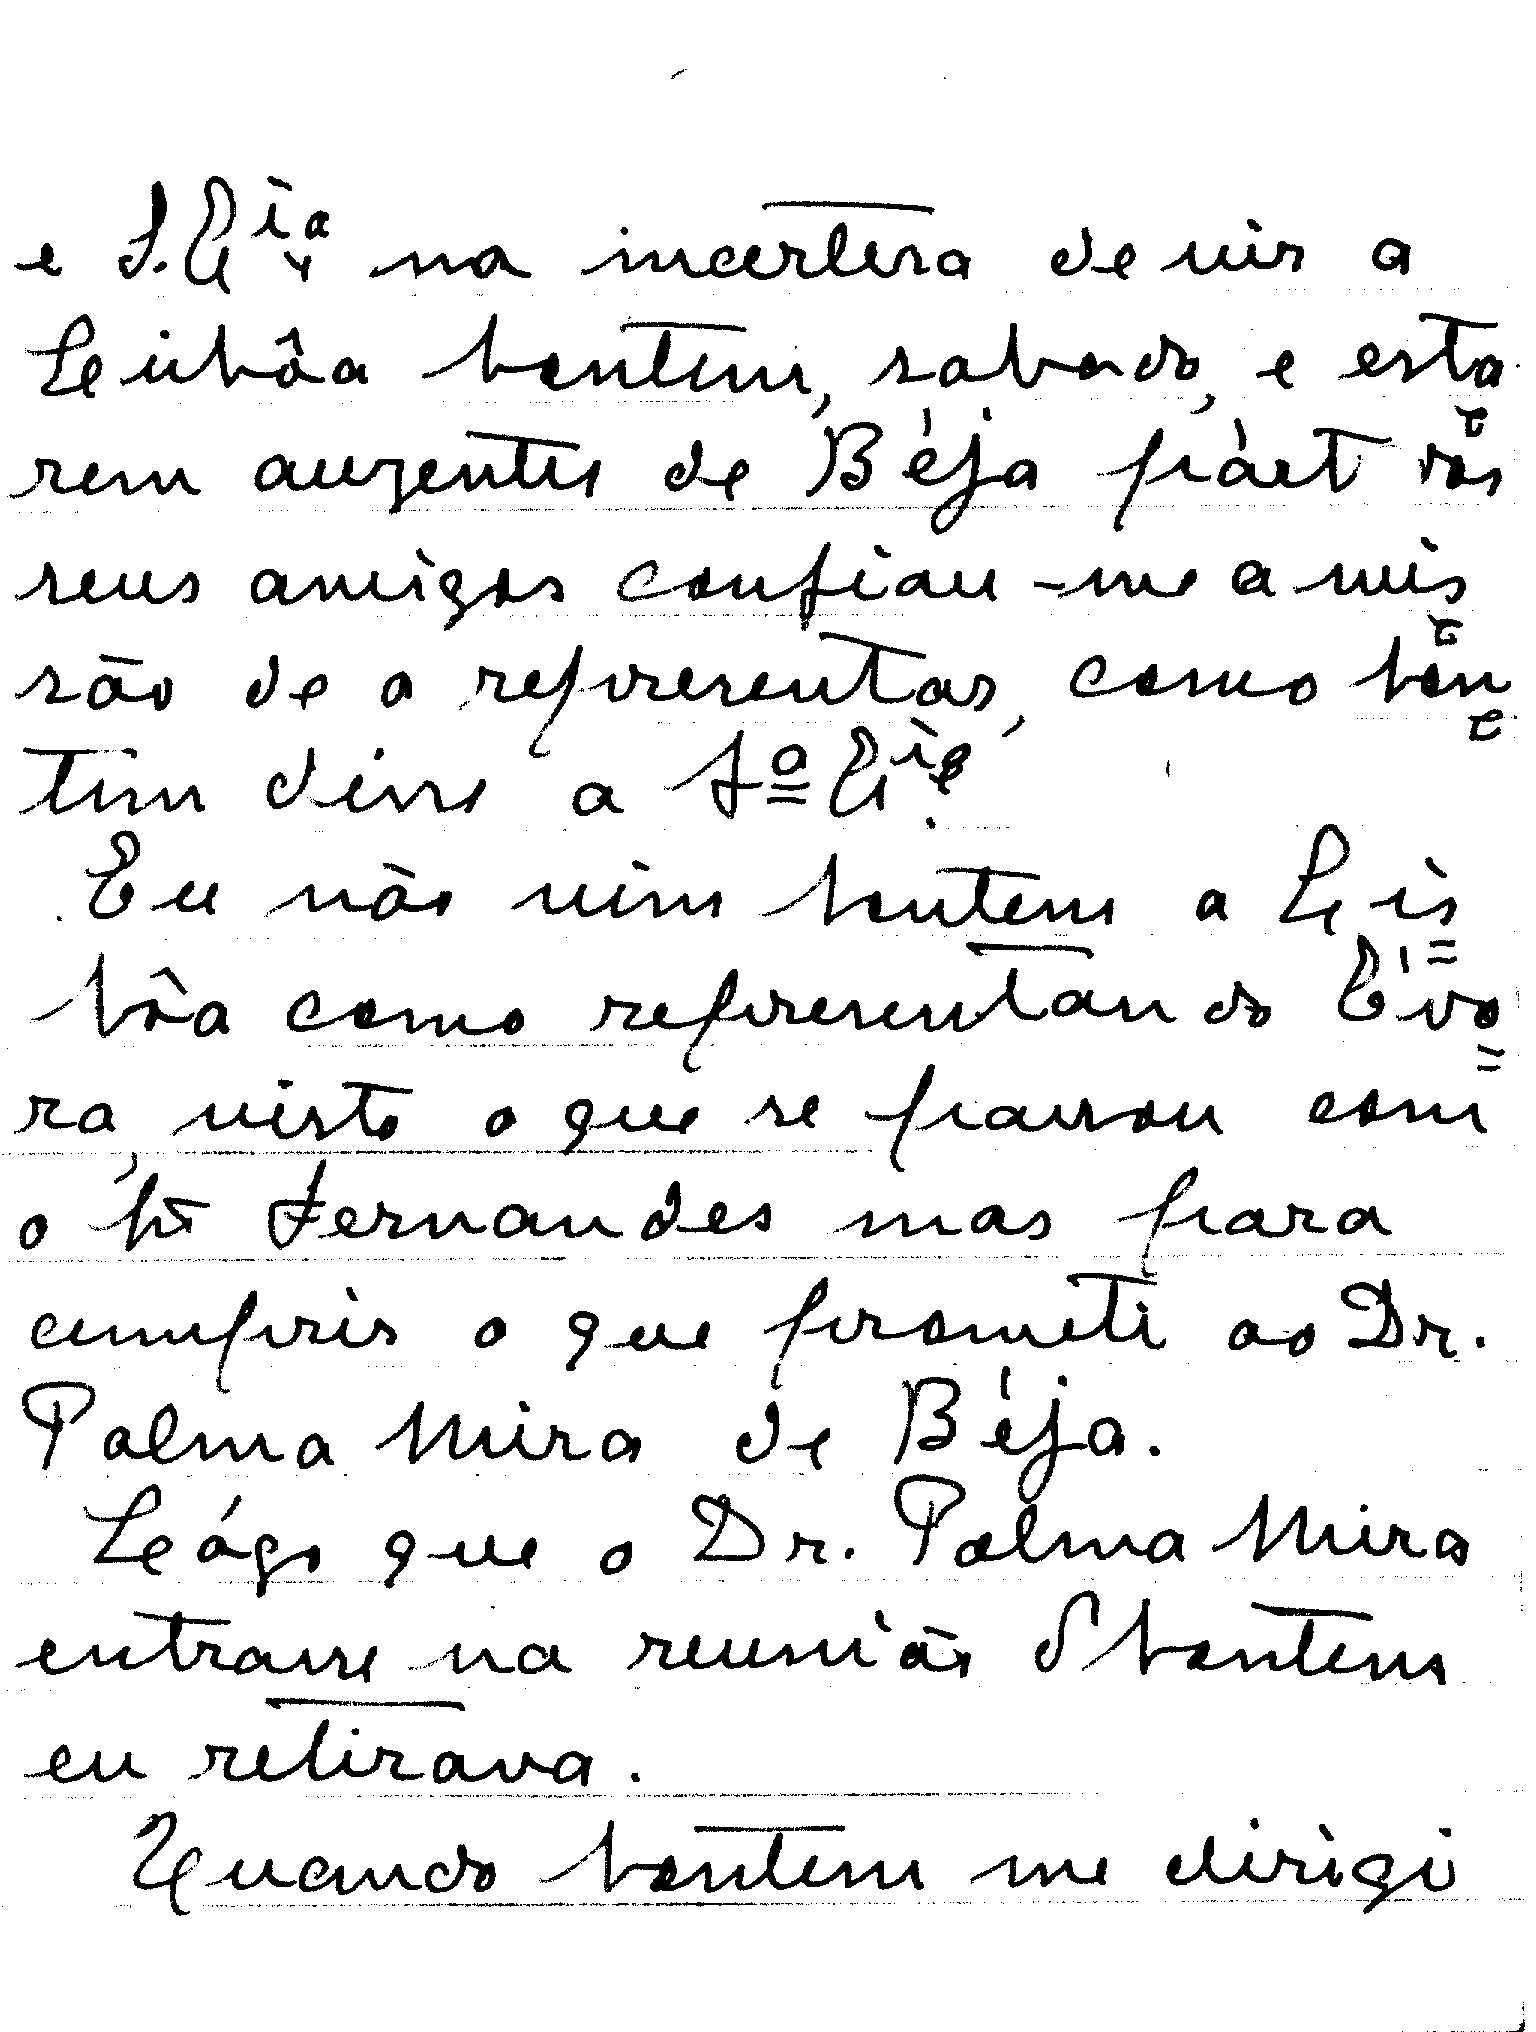 e S. Ex.ia na incerteza de vir a
Lisbôa hontem, sabado, e esta
rem auzentes de Béja párt dos
seus amigos confiou-me a mis
são de o representar, como hon
tem disse a S.ª Ex.ia.
Eu não vim hontem a Lis
bôa como representando Évo
ra, visto o que se passou com
o Snr Fernandes mas para
cumprir o que prometi ao Dr.
Palma Mira de Béja.
Lógo que o Dr. Palma Mira
entrasse na reunião d'hontem
eu retirava.
Quando hontem me dirigi